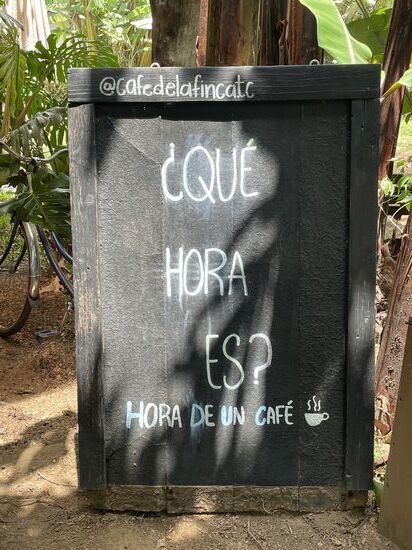 @cafedelafincatc
¿QUÉ
HORA
ES?
HORA DE UN CAFÉ